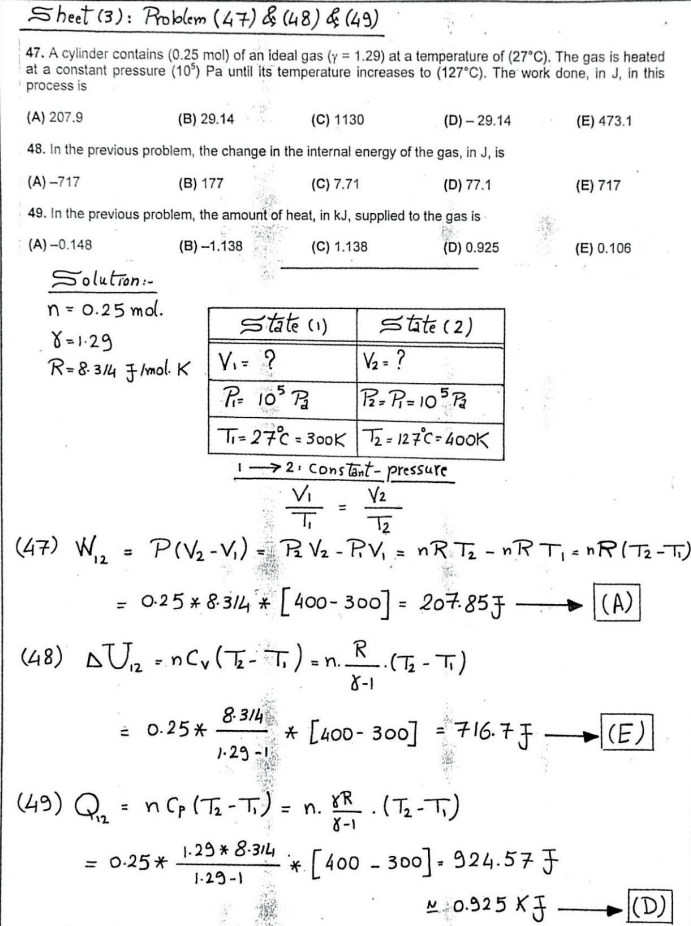 Sheet (3): Problem (47) & (48) & (49)
47. A cylinder contains (0.25 mol) of an ideal gas (γ = 1.29) at a temperature of (27°C). The gas is heated
at a constant pressure (10⁵) Pa until its temperature increases to (127°C). The work done, in J, in this
process is
(A) 207.9 (B) 29.14 (C) 1130 (D) – 29.14 (E) 473.1
48. In the previous problem, the change in the internal energy of the gas, in J, is
(A) –717 (B) 177 (C) 7.71 (D) 77.1 (E) 717
49. In the previous problem, the amount of heat, in kJ, supplied to the gas is
(A) –0.148 (B) –1.138 (C) 1.138 (D) 0.925 (E) 0.106
Solution:-
n = 0.25 mol.
γ = 1.29
R = 8.314 J/mol. K
State (1) State (2)
V₁ = ? V₂ = ?
P₁ = 10⁵ Pa P₂ = P₁ = 10⁵ Pa
T₁ = 27°C = 300K T₂ = 127°C = 400K
1 → 2: Constant-pressure
V₁/T₁ = V₂/T₂
(47) W₁₂ = P(V₂ - V₁) = P₂V₂ - P₁V₁ = nRT₂ - nRT₁ = nR(T₂ - T₁)
= 0.25 * 8.314 * [400 - 300] = 207.85 J → (A)
(48) ΔU₁₂ = nCᵥ(T₂ - T₁) = n. R/(γ-1) .(T₂ - T₁)
= 0.25 * 8.314/(1.29-1) * [400 - 300] = 716.7 J → (E)
(49) Q₁₂ = n Cₚ (T₂ - T₁) = n. γR/(γ-1) . (T₂ - T₁)
= 0.25 * (1.29 * 8.314)/(1.29-1) * [400 - 300] = 924.57 J
≃ 0.925 KJ → (D)